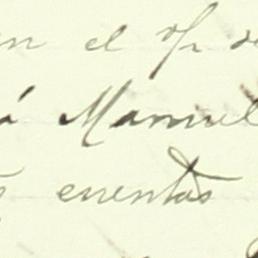 en el
á Manuel
cuentas